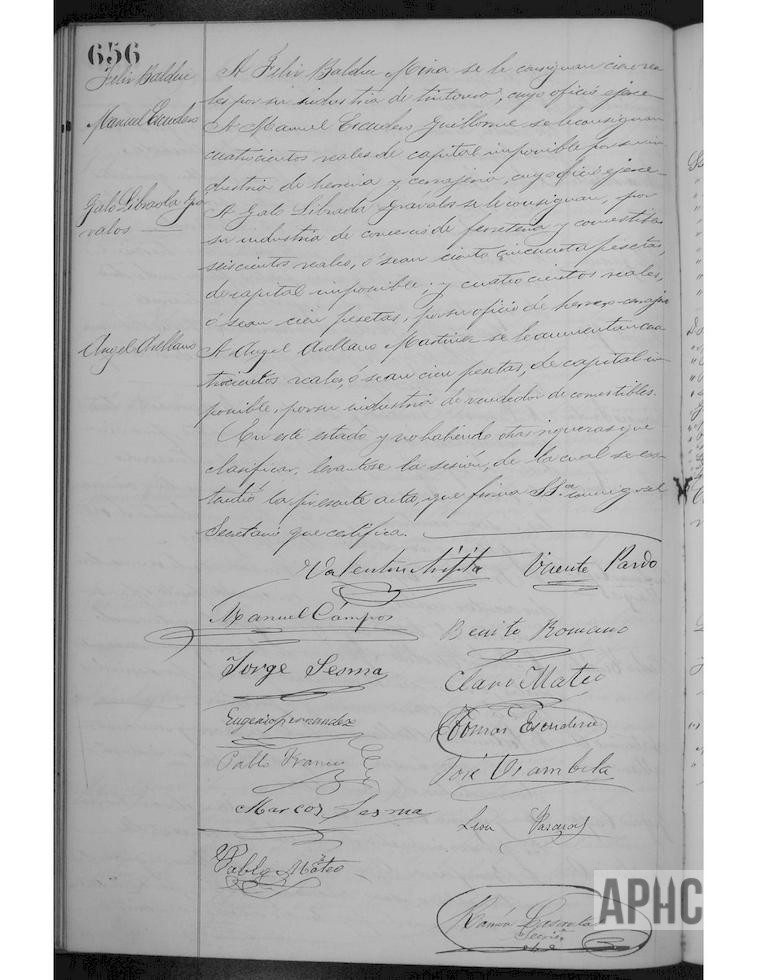 656
Felix Baldue
A Felix Baldue Mina se le consignan cien rea
les por su industria de tintorero, cuyo oficio ejerce
Manuel Escudero
A Manuel Escudero Guillorme se le consignan
cuatrocientos reales de capital imponible por su in
dustria de herreria y cerrajeria, cuyo oficio ejerce
Galo Librada Gra
valos
A Galo Librada Gravalos se le consignan, por
su industria de comercio de ferreteria y comestibles
seiscientos reales, ó sean ciento cincuenta pesetas,
de capital imponible; y cuatrocientos reales,
ó sean cien pesetas, por su oficio de herrero-cerrajero
Angel Arellano
A Angel Arellano Martinez se le aumentan cua
trocientos reales, ó sean cien pesetas, de capital im
ponible, por su industria de vendedor de comestibles.
En este estado y no habiendo otras riquezas que
clasificar, levantóse la sesión, de la cual se es
tendió la presente acta, que firma SSª conmigo el
Secretario que certifica.
Valentin Vicente Pardo
Manuel Cámpos
Benito Romano
Jorge Sesma
Claro Mateo
Eugenio fernandez
Tomás Escudero
Pablo Franco
José
Marcos Sesma
Leon Pascual
Pablo Mateo
Ramón
Secrio
APHC